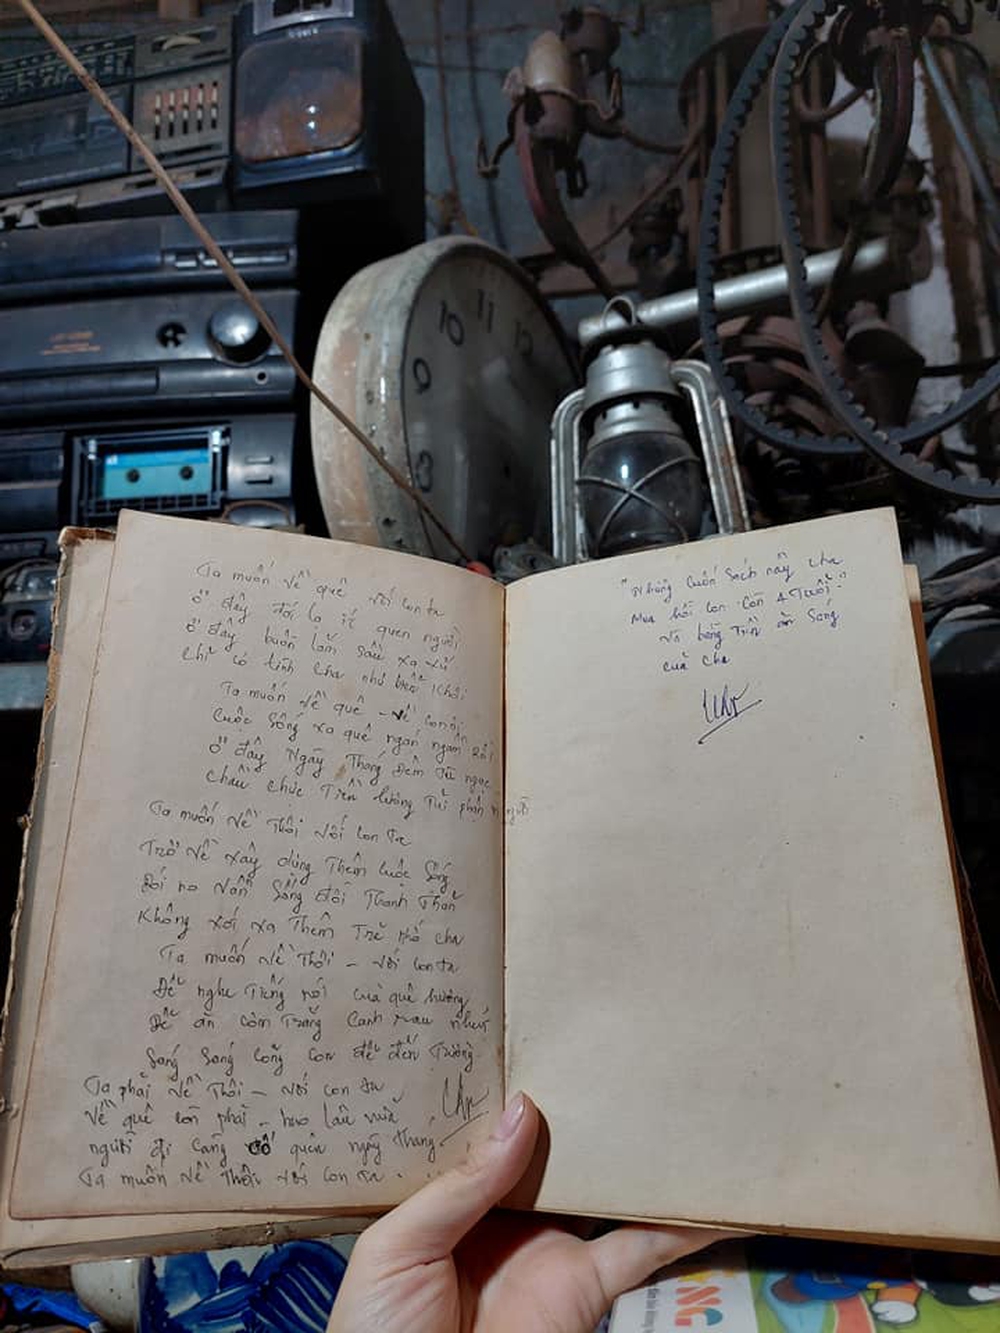 10 11 12
9
8
Ta muốn về quê với con ta
Ở đây đói lạ ít quen người
Ở đây buồn lắm sầu xa xứ
Chỉ có tình cha như biển khơi
Ta muốn về quê - về con ơi
Cuộc sống xa quê ngán ngẩm rồi
Ở đây ngày tháng đêm
chầu chực tiền lương tủi phận người
Ta muốn về thôi với con ta
Trở về xây dựng thêm cuộc sống
Đói no vẫn sống đời thanh thản
Không xót xa thêm trẻ nhớ cha
Ta muốn về thôi - với con ta
Để nghe tiếng nói của quê hương
Để ăn cơm trắng canh rau nhút
Sáng sáng cõng con để đến trường
Ta phải về thôi - với con ta
Về quê còn phải - bao lâu nữa
người đi càng cố quên ngày tháng
Ta muốn về thôi với con ta.
"Những cuốn sách này cha
Mua hồi con còn 4 tuổi"
Và bằng tiền ăn sáng
của cha
NG